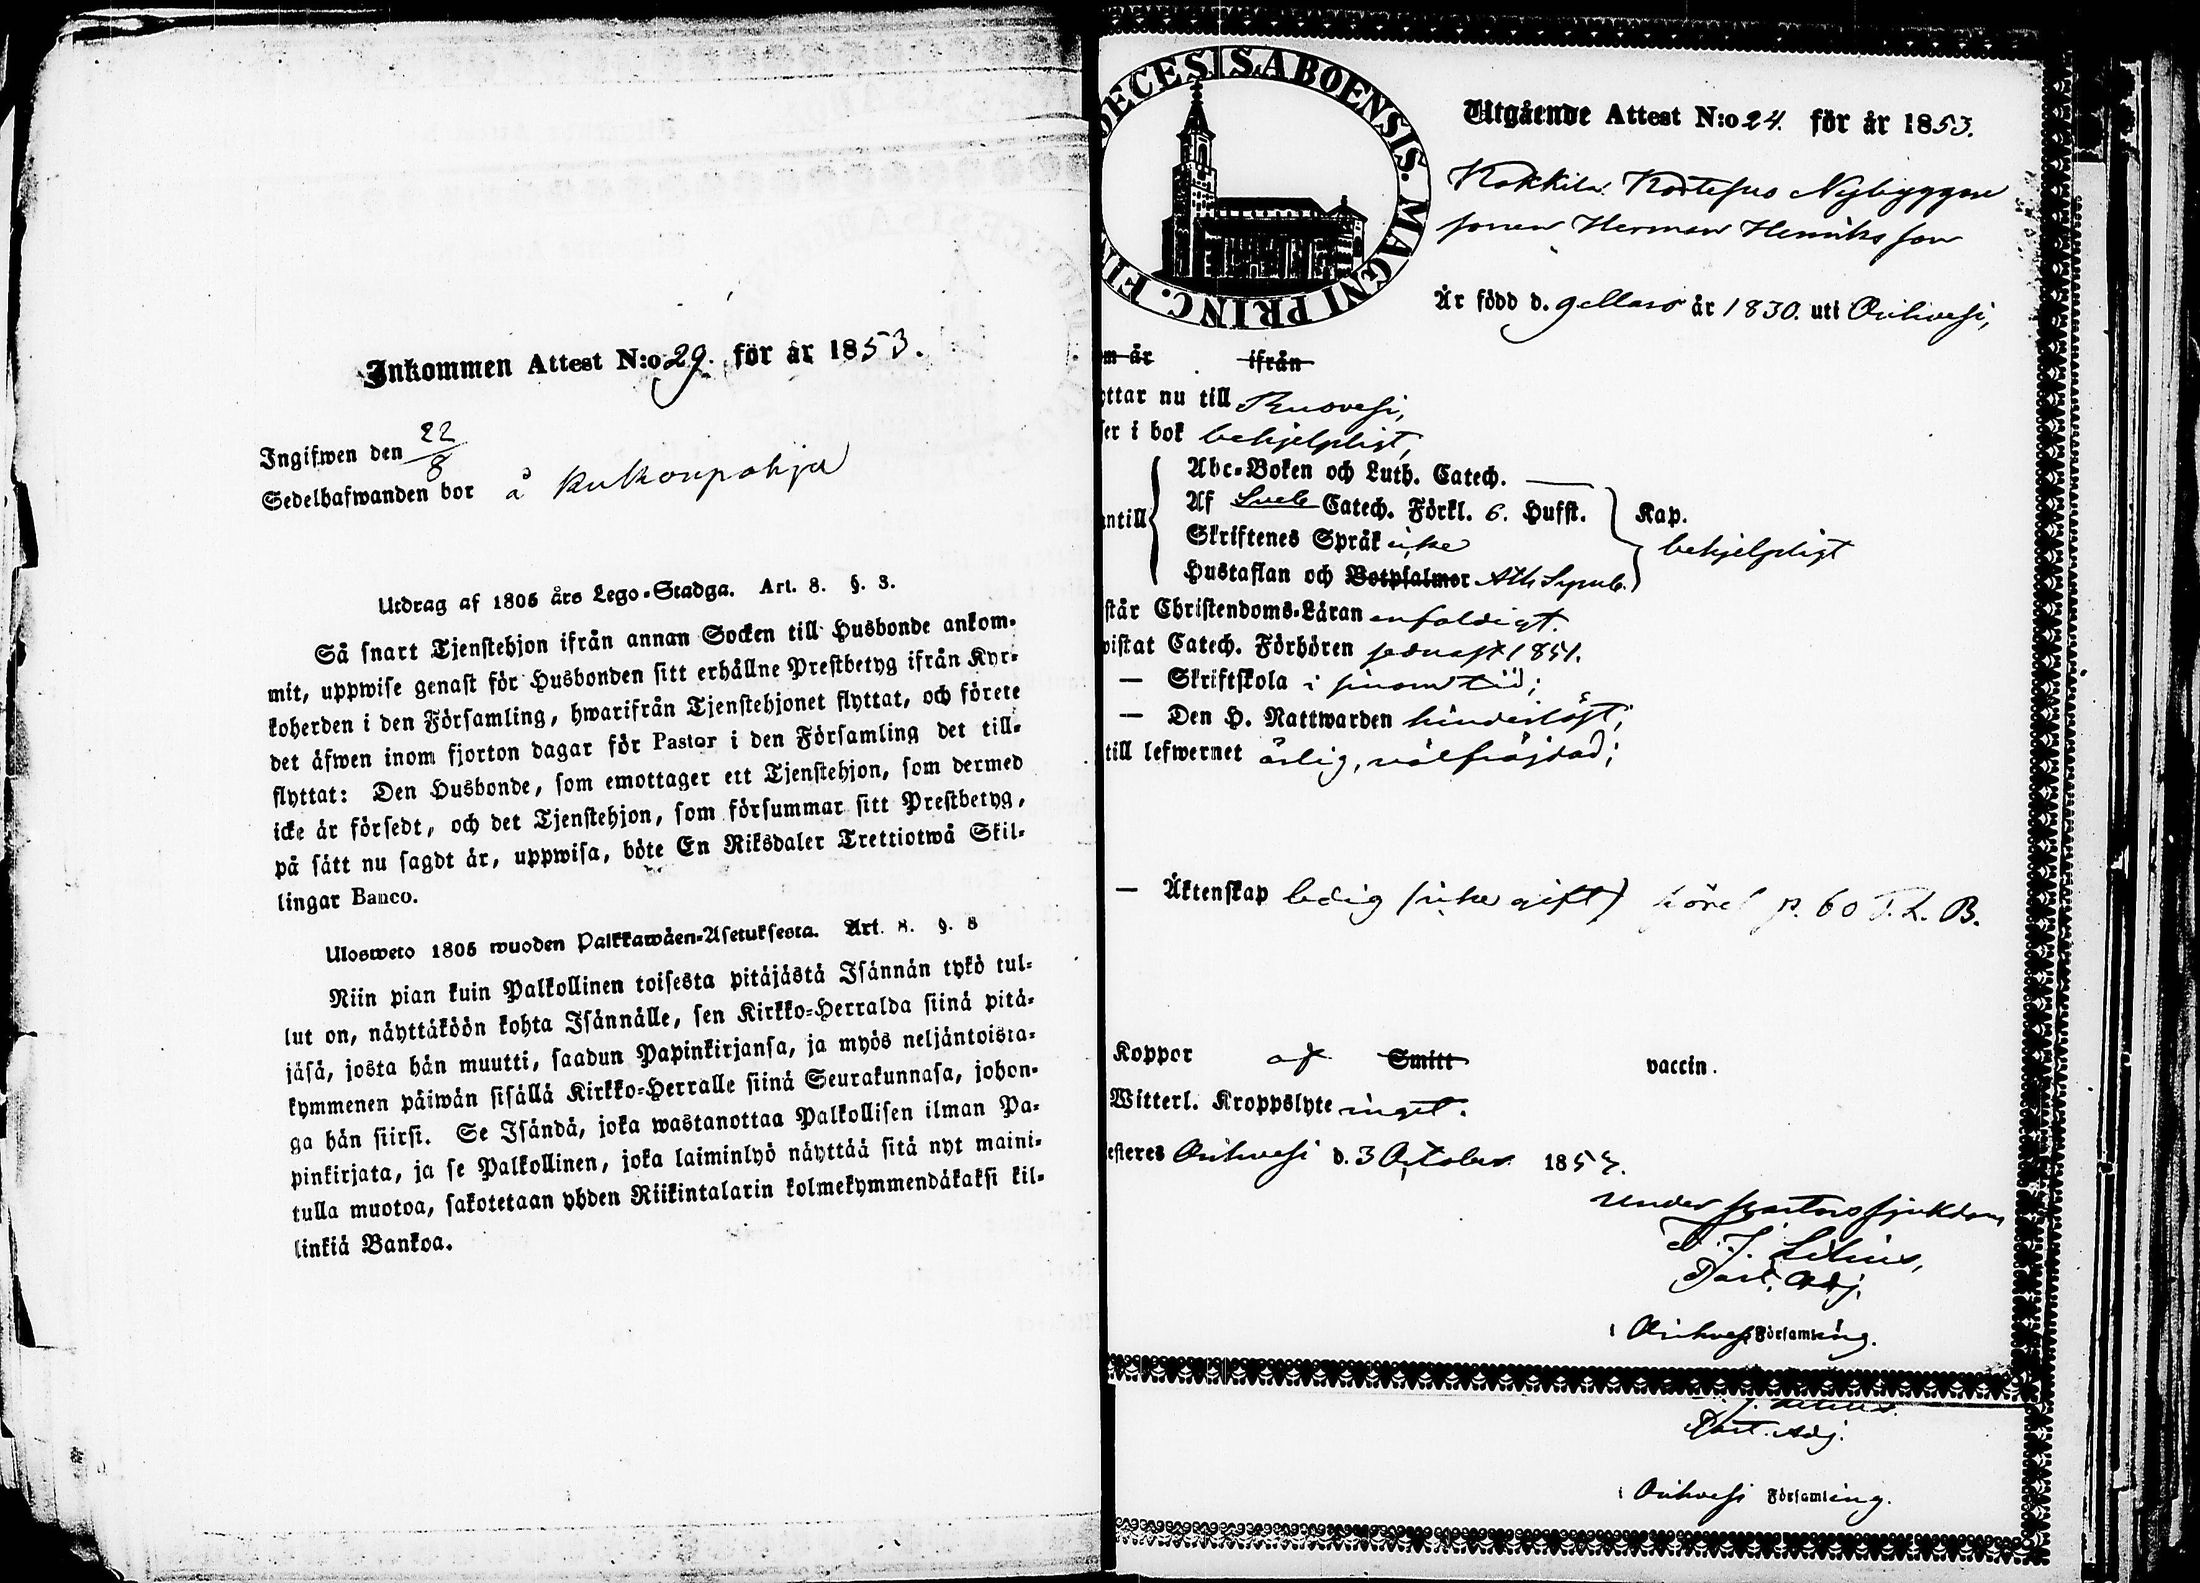 Inkommen Attest N:o 29. för år 1853.
Ingifwen den 22/8
Sedelhafwanden bor å Kulkoupohja
Utdrag af 1805 års Lego-Stadga. Art. 8. §. 3.
Så snart Tjenstehjon ifrån annan Socken till Husbonde ankom-
mit, uppwise genast för Husbonden sitt erhållne Prestbetyg ifrån Kyr-
koherden i den Församling, hwarifrån Tjenstehjonet flyttat, och förete
det äfwen inom fjorton dagar för Pastor i den Församling det till-
flyttat: Den Husbonde, som emottager ett Tjenstehjon, som dermed
icke är försedt, och det Tjenstehjon, som försummar sitt Prestbetyg,
på sätt nu sagdt är, uppwisa, böte En Riksdaler Trettiotwå Skil-
lingar Banco.
Ulosweto 1805 wuoden Palkkawäen-Asetuksesta. Art. 8. §. 8
Niin pian kuin Palkollinen toisesta pitäjästä Isännän tykö tul-
lut on, näyttäköön kohta Isännälle, sen Kirkko-Herralda siinä pitä-
jäsä, josta hän muutti, saadun Papinkirjansa, ja myös neljäntoista-
kymmenen päiwän sisällä Kirkko-Herralle siinä Seurakunnasa, johon-
ga hän siirsi. Se Isändä, joka wastanottaa Palkollisen ilman Pa-
pinkirjata, ja se Palkollinen, joka laiminlyö näyttää sitä nyt maini-
tulla muotoa, sakotetaan yhden Riikintalarin kolmekymmendäkaksi kil-
linkiä Bankoa.
OECESIS ABOENSIS. MAGNI PRINC. FI
Utgående Attest N:o 24. för år 1853.
Kokkila Kortesuo Nybyggare
sonen Herman Henriksson
Är född d. 9 Mars år 1830. uti Orihvesi,
m år ifrån
yttar nu till Ruovesi,
ser i bok behjelpligt,
Abc-Boken och Luth. Catech. —
Af Sveb Catech. Förkl. 6. Hufst. Kap.
antill Skriftenes Språk icke behjelpligt
Hustaflan och Botpsalmer Ath Symb.
står Christendoms-Läran enfaldigt.
vistat Catech. Förhören senast 1851.
— Skriftskola i sinom tid;
— Den H. Nattwarden hinderlöst;
till lefwernet ärlig, välfräjdad;
— Äktenskap ledig (icke gift) p. 60 T. L. B.
Koppor af Smitt vaccin.
Witterl. Kroppslyte inget.
esteres Orihvesi d. 3 October 1852.
Under Pastors sjukdom
J. Lilius,
Past. Adj.
i Orihvesi Församling.
J. Lilius.
Past. Adj.
i Orihvesi Församling.